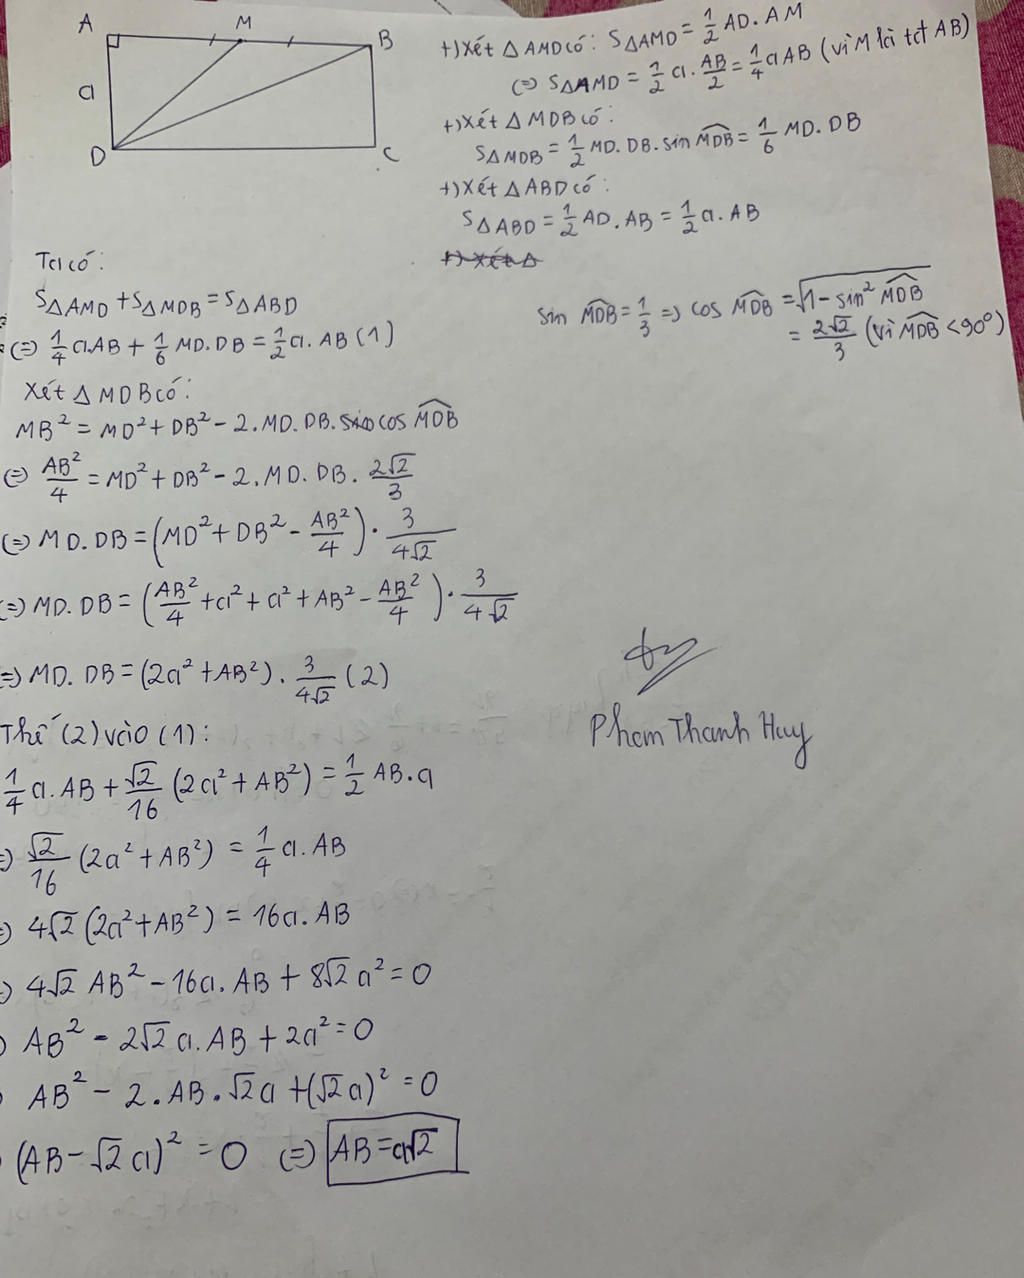 A M B
a
D C
+) Xét △AMD có: S△AMD = 1/2 AD. AM
(=) S△AMD = 1/2 a. AB/2 = 1/4 aAB (vì M là tđ AB)
+) Xét △MDB có:
S△MDB = 1/2 MD. DB. sin MDB^ = 1/6 MD. DB
+) Xét △ABD có:
S△ABD = 1/2 AD. AB = 1/2 a. AB
+) Xét △
Ta có:
S△AMD + S△MDB = S△ABD
(=) 1/4 a.AB + 1/6 MD. DB = 1/2 a. AB (1)
sin MDB^ = 1/3 => cos MDB^ = √(1 - sin² MDB^)
= 2√2/3 (vì MDB^ < 90°)
Xét △MDB có:
MB² = MD² + DB² - 2. MD. DB. sin cos MDB^
(=) AB²/4 = MD² + DB² - 2. MD. DB. 2√2/3
(=) MD. DB = (MD² + DB² - AB²/4) . 3/4√2
(=) MD. DB = (AB²/4 + a² + a² + AB² - AB²/4) . 3/4√2
=) MD. DB = (2a² + AB²) . 3/4√2 (2)
Thế (2) vào (1):
1/4 a. AB + √2/16 (2a² + AB²) = 1/2 AB. a
=) √2/16 (2a² + AB²) = 1/4 a. AB
=) 4√2 (2a² + AB²) = 16a. AB
) 4√2 AB² - 16a. AB + 8√2 a² = 0
) AB² - 2√2 a. AB + 2a² = 0
AB² - 2. AB. √2a + (√2a)² = 0
(AB - √2a)² = 0 (=) AB = a√2
Pham Thanh Huy